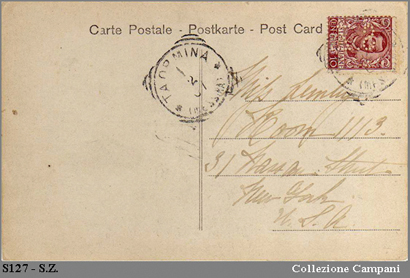 Carte Postale - Postkarte - Post Card
TAORMINA
Miss
Room 1113.
31 Nassau Street
New York
U. S. A.
S127 - S.Z.
Collezione Campani